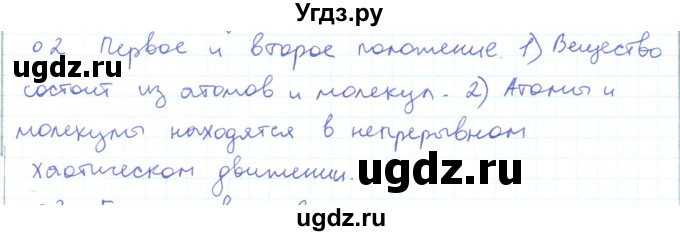 Угдз.ру
02 Первое и второе положение. 1) Вещество
ugdz.ru ugdz.ru
состоит из атомов и молекул. 2) Атомы и
молекулы находятся в непрерывном
хаотическом движении.
ugdz.ru ugdz.ru
ugdz.ru